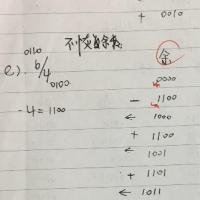 + 0010
不恢复余数
余
0110
e). 6/4
0100
0000
-4 = 1100
- 1100
← 1000
+ 1100
1001
+ 1101
← 1011